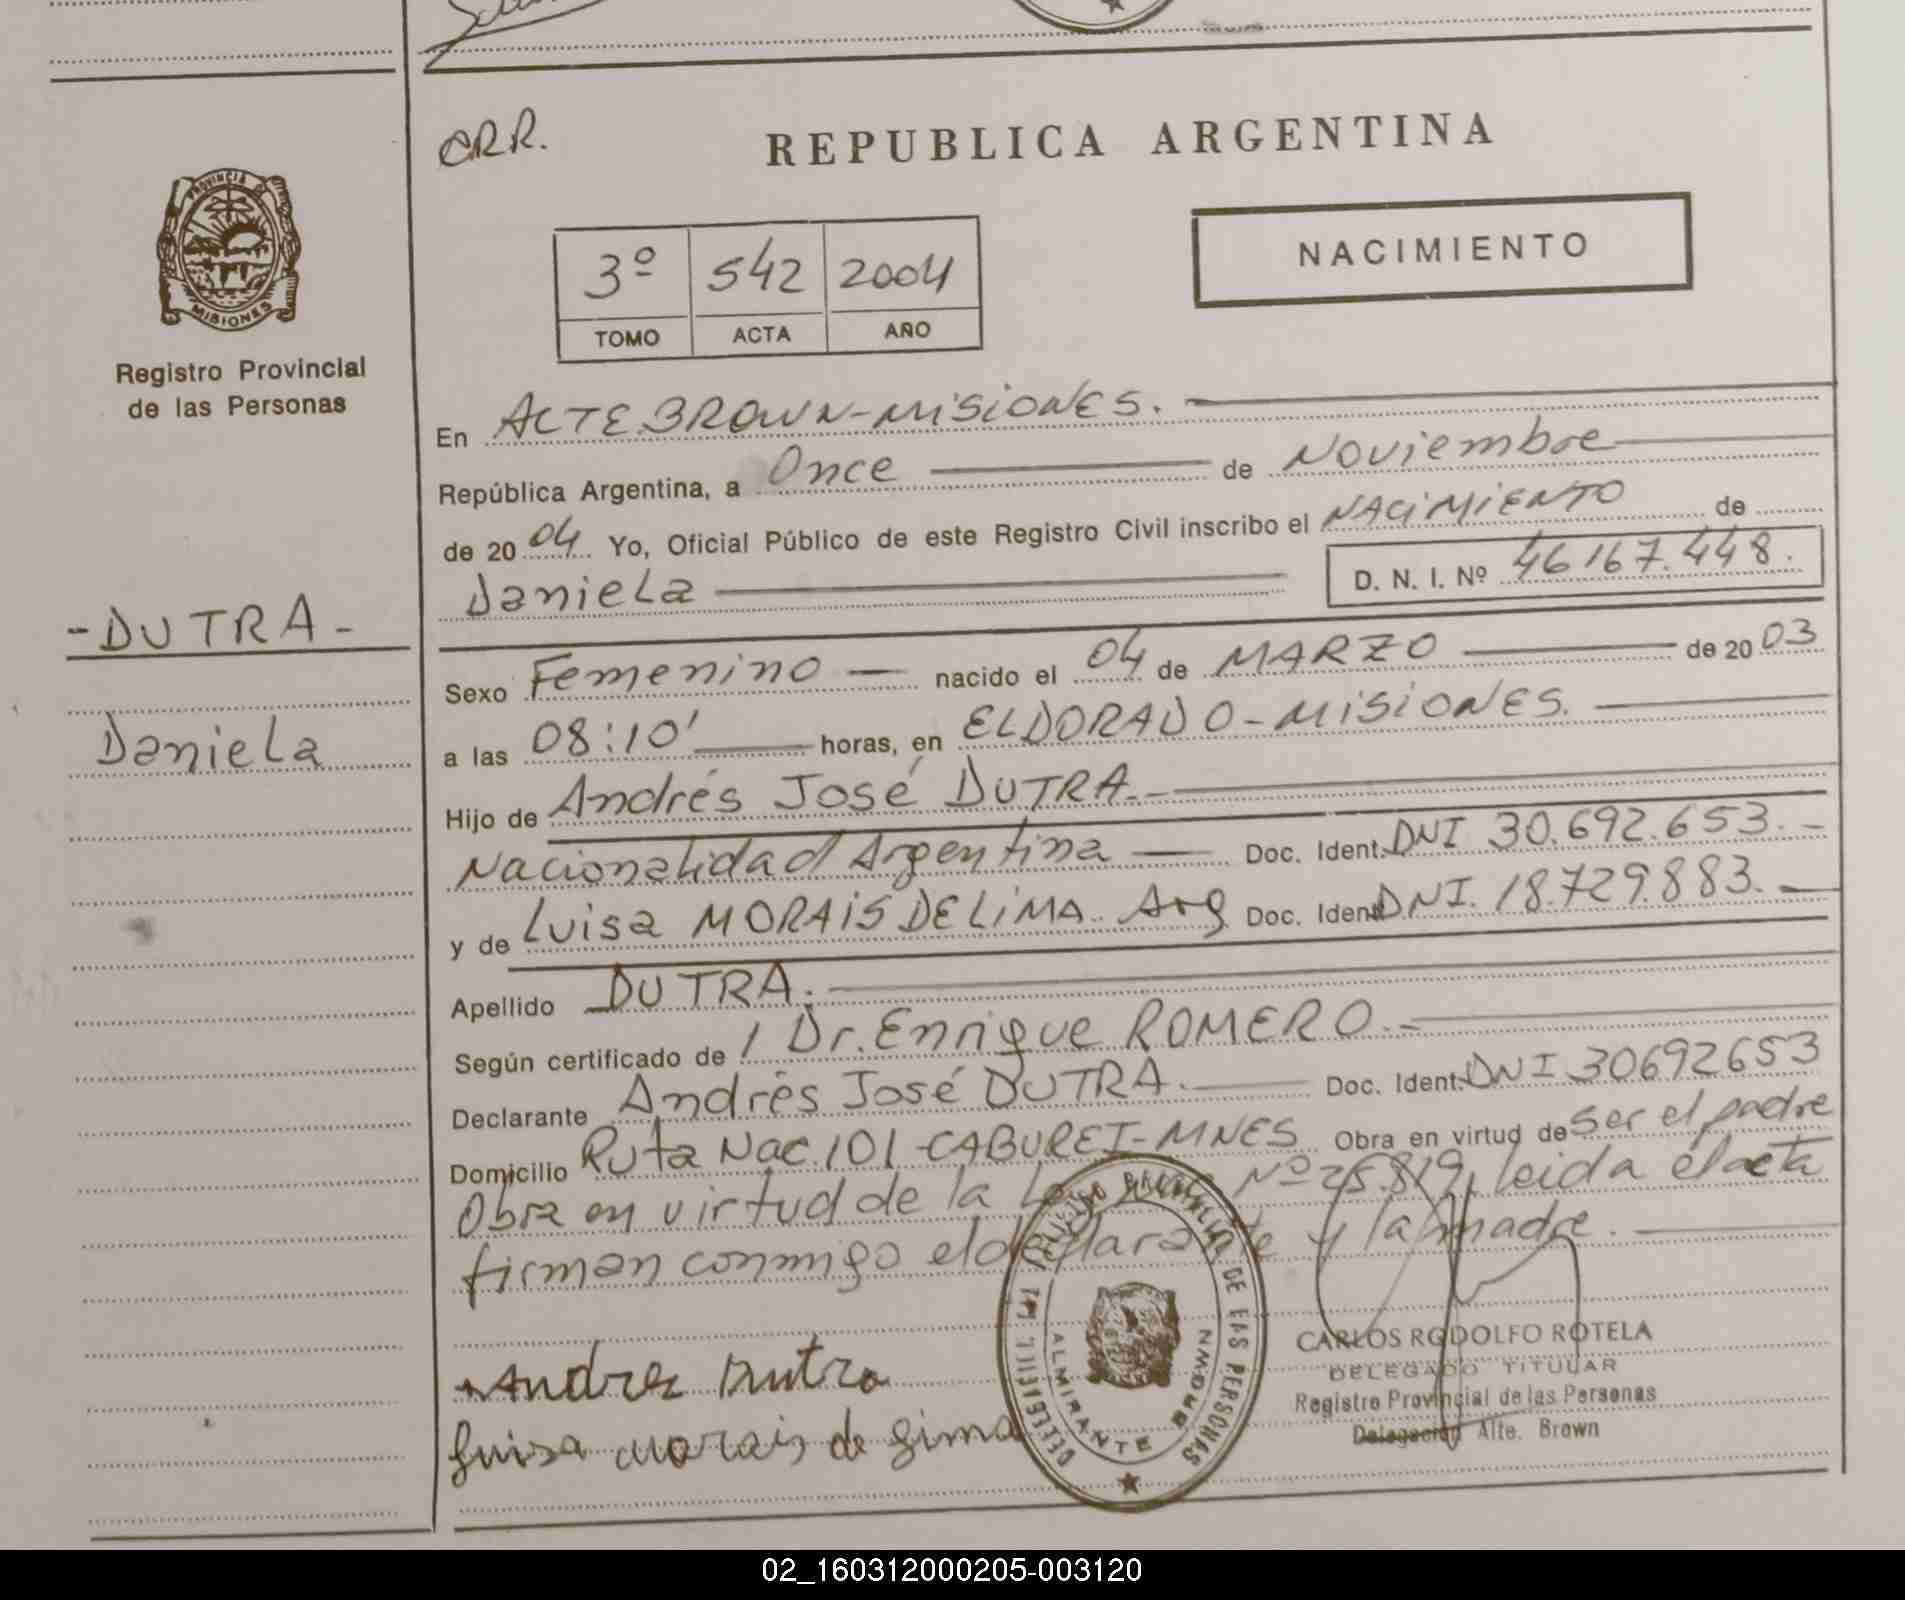 CRR.
REPUBLICA ARGENTINA
PROVINCIA DE
MISIONES
Registro Provincial
de las Personas
3º 542 2004
TOMO ACTA AÑO
NACIMIENTO
En ALTE BROWN-MISIONES.
República Argentina, a Once de Noviembre
de 2004 Yo, Oficial Público de este Registro Civil inscribo el NACIMIENTO de
Daniela D. N. I. Nº 46167.448.
-DUTRA-
Daniela
Sexo Femenino nacido el 04 de MARZO de 2003
a las 08:10' horas, en ELDORADO-MISIONES.
Hijo de Andrés José DUTRA.-
Nacionalidad Argentina Doc. Ident. DNI 30.692.653.-
y de Luisa MORAIS DE LIMA. Arg Doc. Ident. DNI. 18.729.883.-
Apellido DUTRA.
Según certificado de Dr. Enrique ROMERO.-
Declarante Andrés José DUTRA. Doc. Ident. DNI 30692653
Domicilio Ruta Nac. 101 -CABUREI-MNES Obra en virtud de ser el padre
Obra en virtud de la Nº 25.819, leida el acta
firman conmigo el declarante y la madre.
Andres Dutra
Luisa Morais de Lima
DE LAS PERSONAS
ALMIRANTE BROWN
CARLOS RODOLFO ROTELA
DELEGADO TITULAR
Registro Provincial de las Personas
Delegación Alte. Brown
02_160312000205-003120